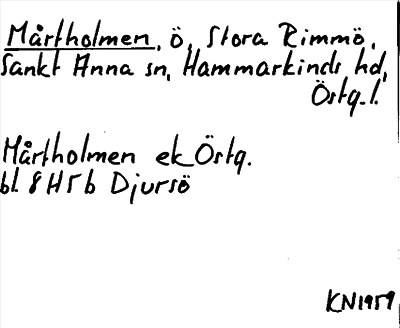 Mårtholmen, ö, Stora Rimmö,
Sankt Anna sn, Hammarkinds hd,
Östg.l.
Mårtholmen ek Östg.
bl. 8H5b Djursö
KN1959